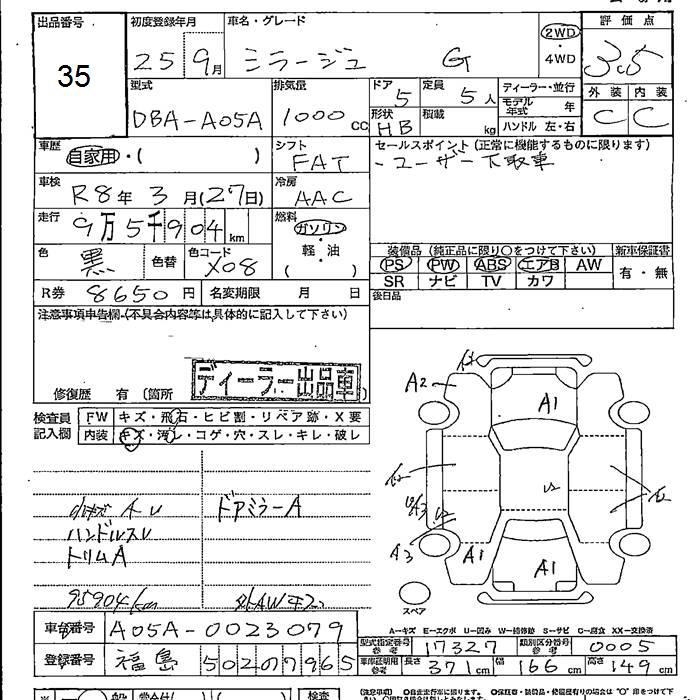 出品番号 初度登録年月 車名・グレード 評価点
35 25 9月 ミラージュ G 2WD・4WD 3.5
型式 排気量 ドア 定員 ディーラー・並行 外装 内装
DBA-A05A 1000cc 5 5人 モデル年式 年 C C
形状 積載 ハンドル 左・右
HB kg
車歴 シフト セールスポイント(正常に機能するものに限ります)
自家用・( ) FAT -ユーザー下取車
車検 冷房
R8年 3月(27日) AAC
走行 燃料
9万5千904km ガソリン・軽・油( )
色 色替 色コード 装備品(純正品に限り○をつけて下さい) 新車保証書
黒 X08 PS PW ABS エアB AW 有・無
SR ナビ TV カワ
R券 8650円 名変期限 月 日 後日品
注意事項申告欄(不具合内容等は具体的に記入して下さい)
修復歴 有(箇所 ディーラー出品車
検査員記入欄 FW キズ・飛石・ヒビ割・リペア跡・X要
内装 キズ・汚レ・コゲ・穴・スレ・キレ・破レ
ドアミラーA
ハンドルスレ
トリムA
95904km
A2 A1
A3 A1 A1
スペア
A-キズ E-エクボ U-凹み W-補修跡 S-サビ C-腐食 XX-交換済
車台番号 A05A-0023079 型式指定番号 参考 17327 類別区分番号 参考 0005
登録番号 福島 502 7965 車庫証明用 参考 長さ 371cm 幅 166cm 高さ 149cm